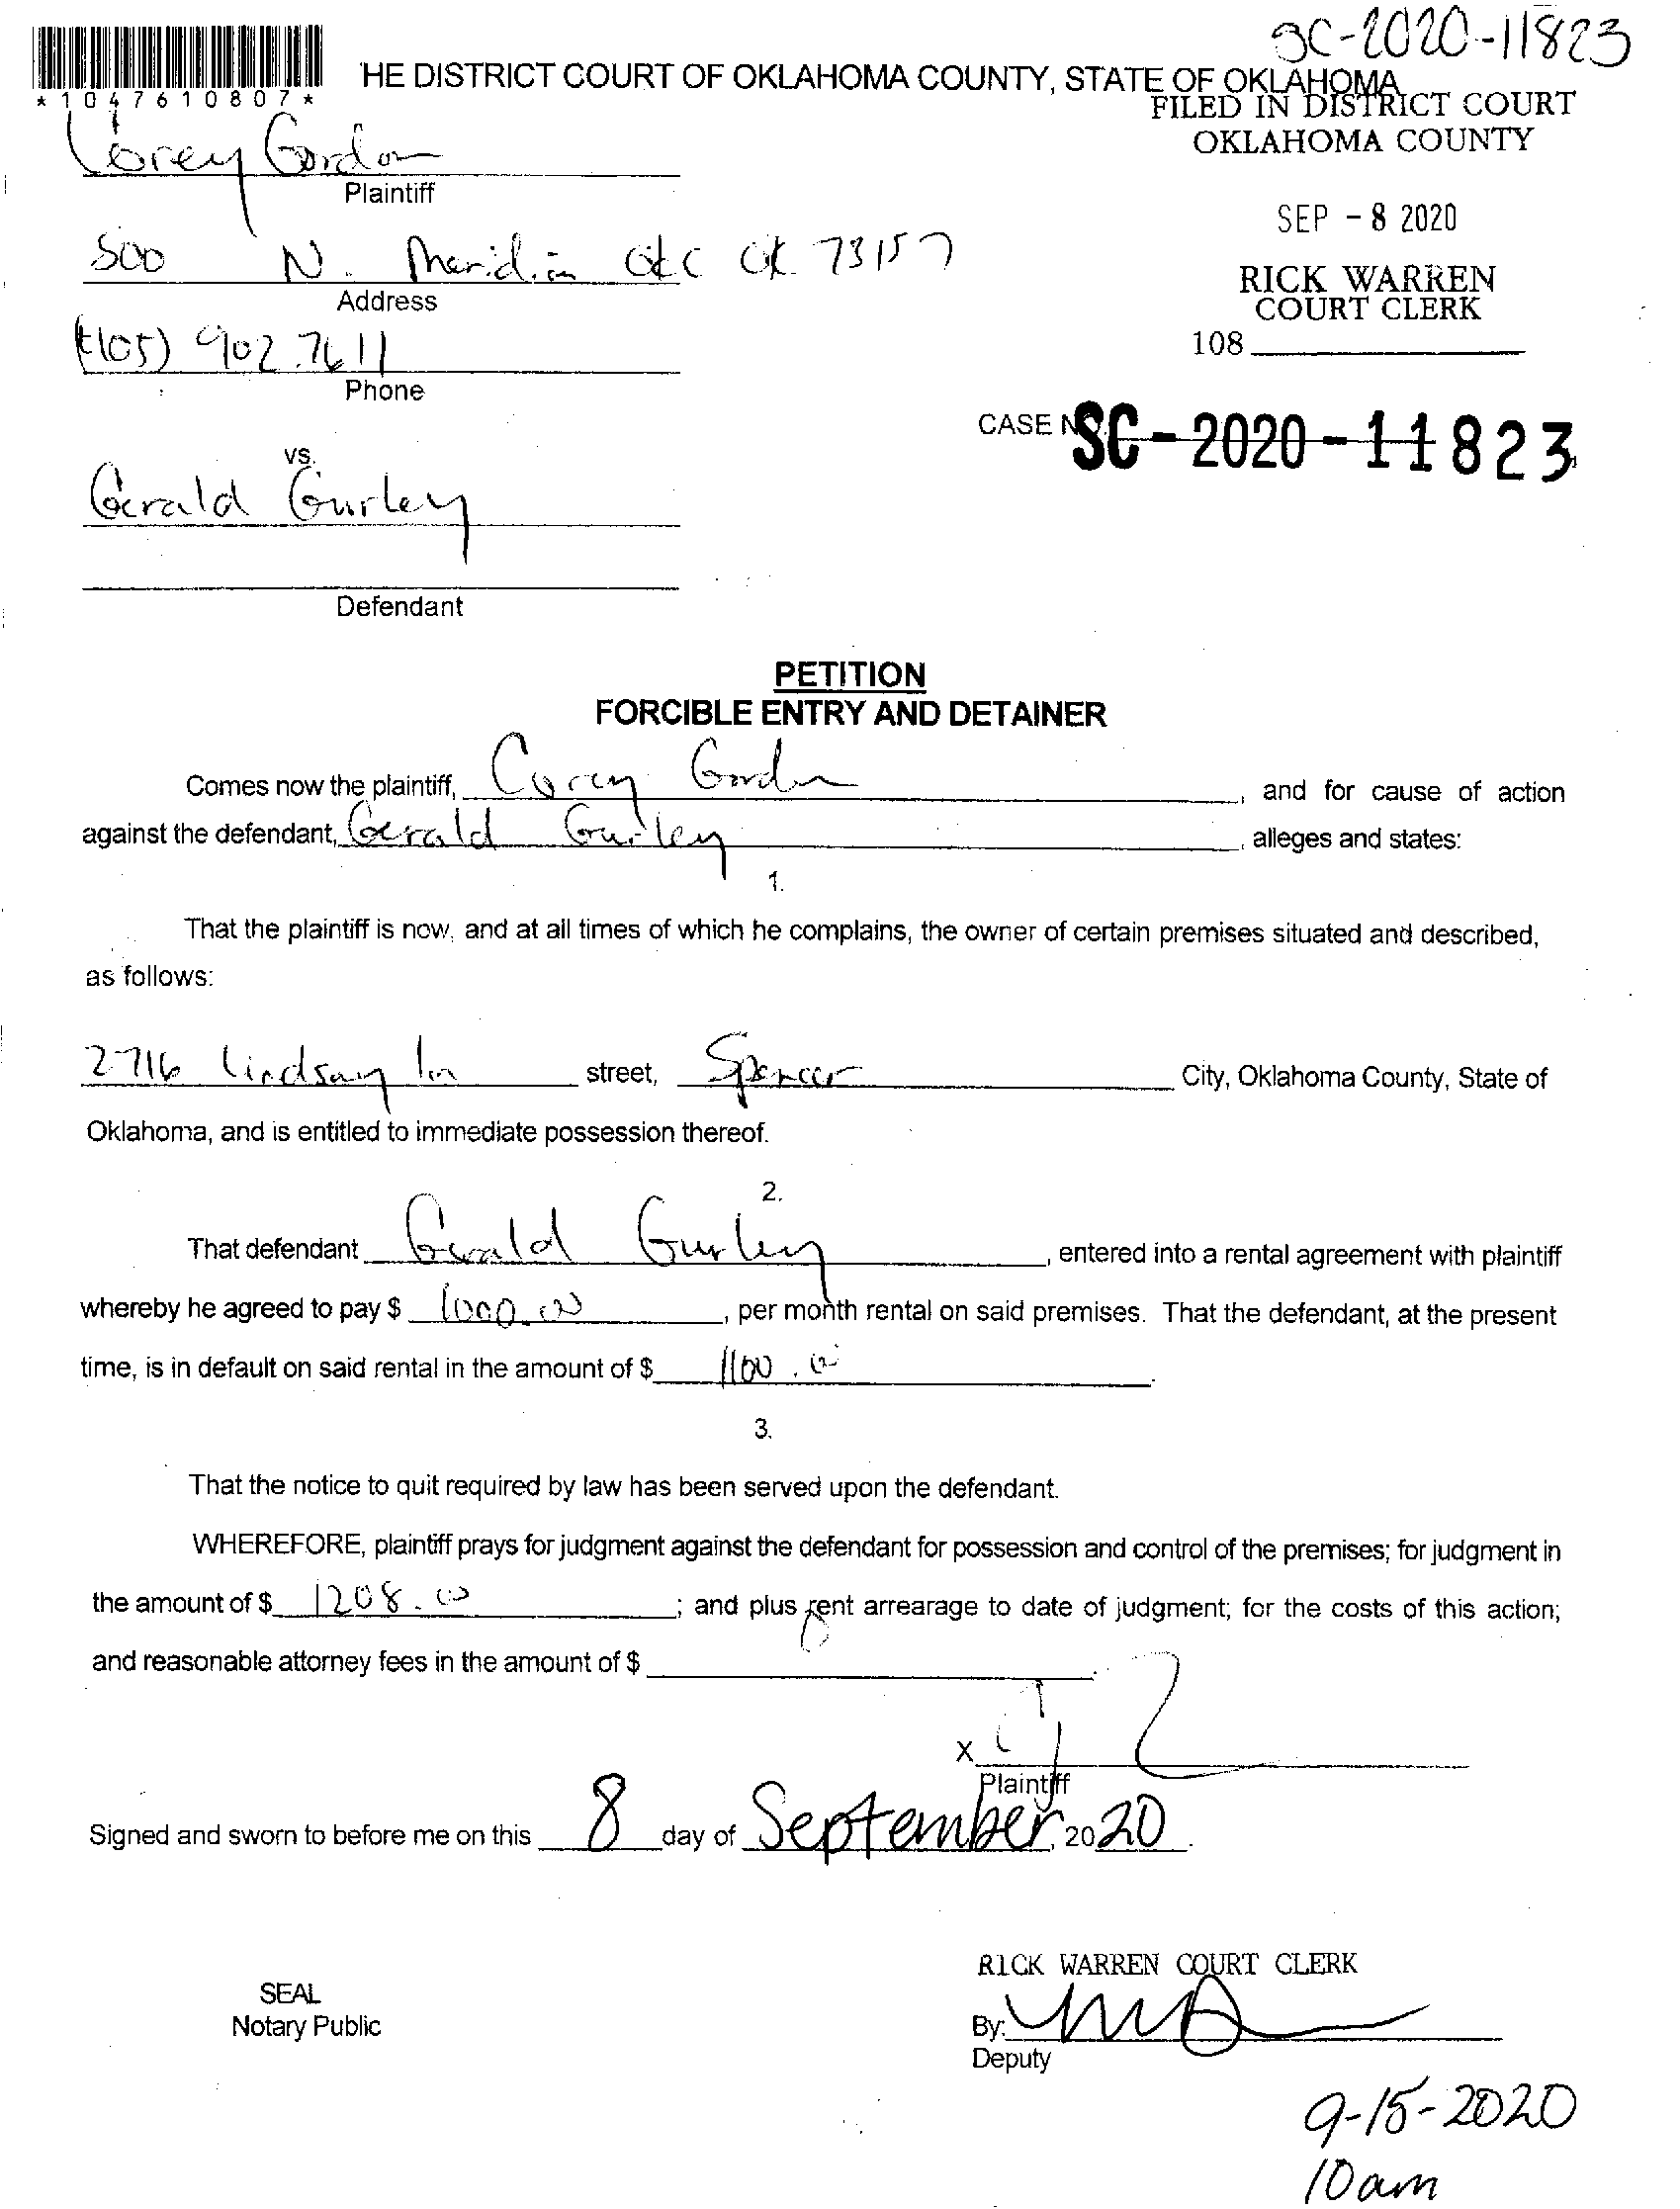 SC-2020-11823
*1047610807*
HE DISTRICT COURT OF OKLAHOMA COUNTY, STATE OF OKLAHOMA
FILED IN DISTRICT COURT
OKLAHOMA COUNTY
Corey Gordon
Plaintiff
SEP - 8 2020
500 N. Meridian OKC OK 73157
Address
RICK WARREN
COURT CLERK
(405) 902.7611
108
Phone
CASE NO. SC-2020-11823
vs.
Gerald Gurley
Defendant
PETITION
FORCIBLE ENTRY AND DETAINER
Comes now the plaintiff, Corey Gordon, and for cause of action
against the defendant, Gerald Gurley, alleges and states:
1.
That the plaintiff is now, and at all times of which he complains, the owner of certain premises situated and described,
as follows:
2716 Lindsay ln street, Spencer City, Oklahoma County, State of
Oklahoma, and is entitled to immediate possession thereof.
2.
That defendant Gerald Gurley, entered into a rental agreement with plaintiff
whereby he agreed to pay $ 1000.00, per month rental on said premises. That the defendant, at the present
time, is in default on said rental in the amount of $ 1100.00.
3.
That the notice to quit required by law has been served upon the defendant.
WHEREFORE, plaintiff prays for judgment against the defendant for possession and control of the premises; for judgment in
the amount of $ 1208.00; and plus rent arrearage to date of judgment; for the costs of this action;
and reasonable attorney fees in the amount of $
X
Plaintiff
Signed and sworn to before me on this 8 day of September, 2020.
RICK WARREN COURT CLERK
SEAL
Notary Public
By:
Deputy
9-15-2020
10am